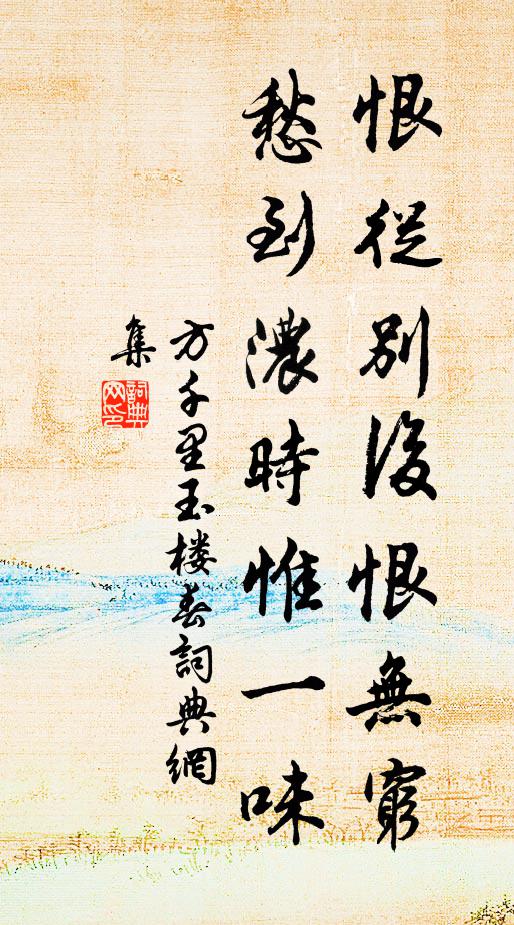 恨從別後恨無窮
愁到濃時惟一味
方千里玉楼春詞典網
集
詞典
网印